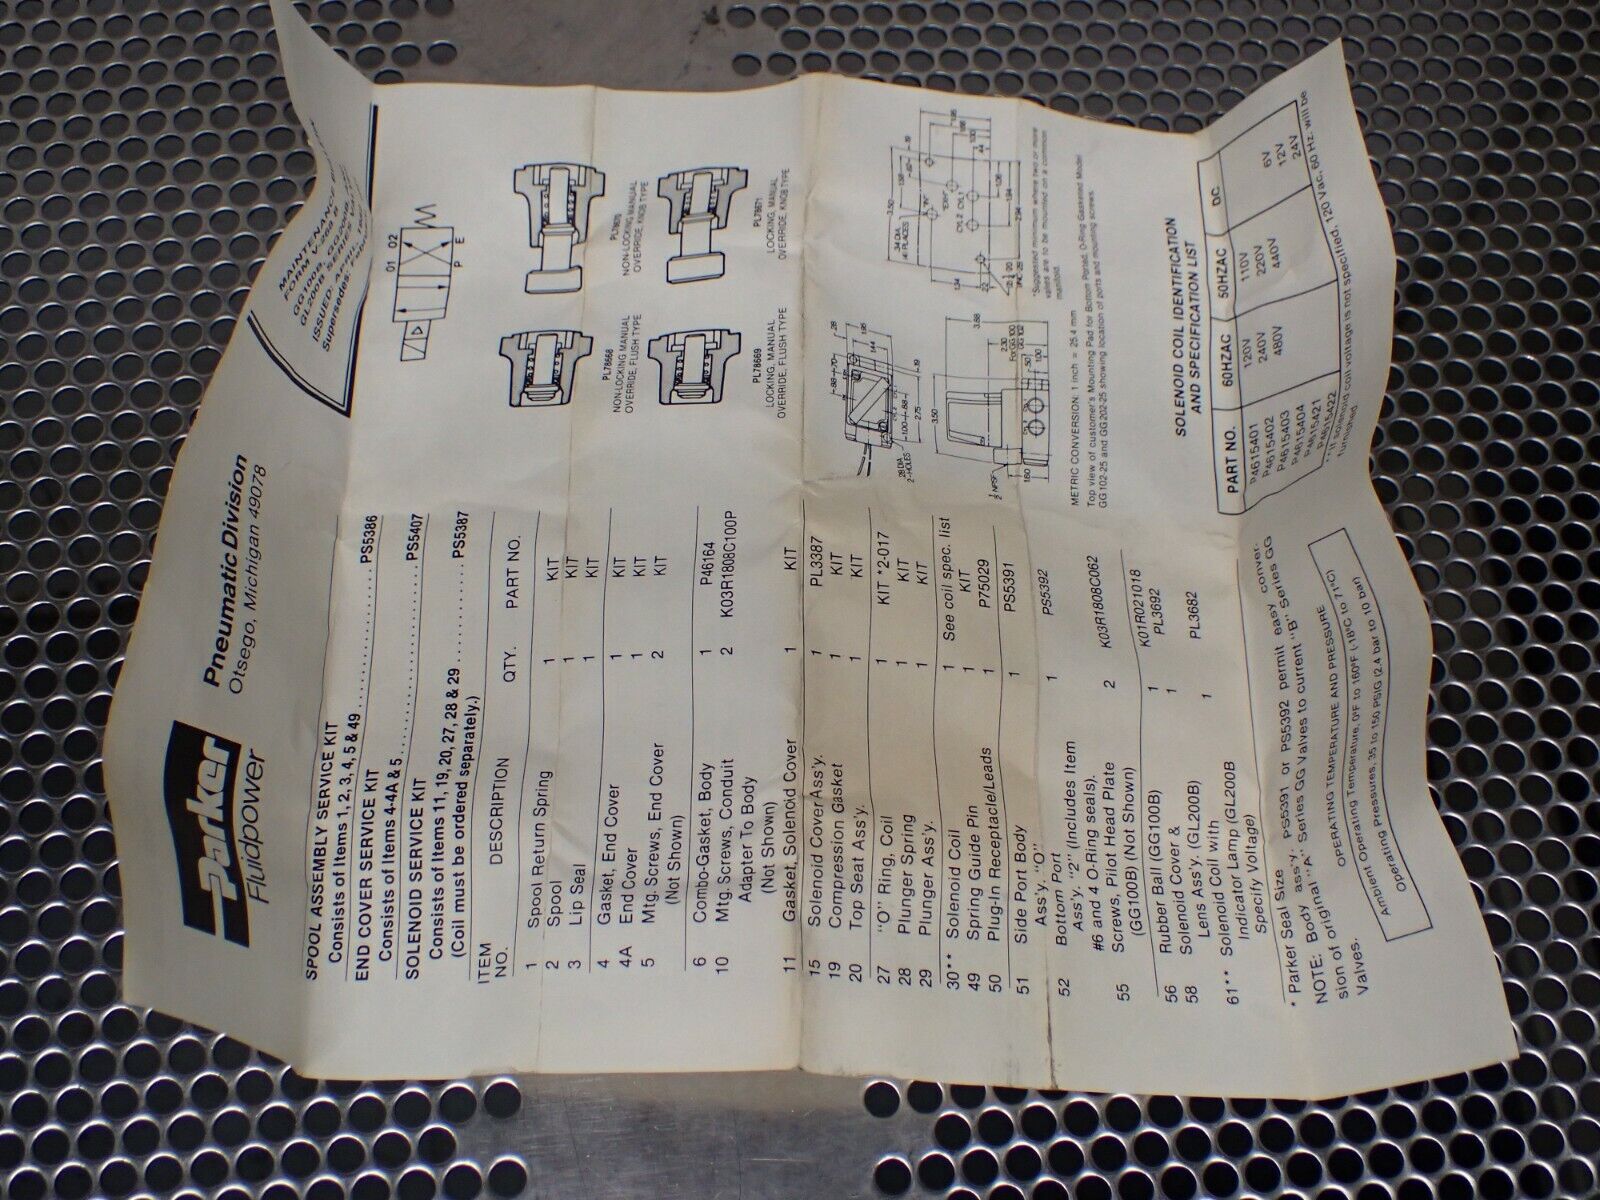 Parker
Fluidpower
Pneumatic Division
Otsego, Michigan 49078
MAINTENANCE
FORM V-268
GG100B, GG200B
GL200B SERIES
ISSUED: APRIL,
Supersedes:
SPOOL ASSEMBLY SERVICE KIT
Consists of Items 1, 2, 3, 4, 5 & 49 .......... PS5386
END COVER SERVICE KIT
Consists of Items 4-4A & 5 .......... PS5407
SOLENOID SERVICE KIT
Consists of Items 11, 19, 20, 27, 28 & 29 .......... PS5387
(Coil must be ordered separately.)
ITEM NO. DESCRIPTION QTY. PART NO.
1 Spool Return Spring 1 KIT
2 Spool 1 KIT
3 Lip Seal 1 KIT
4 Gasket, End Cover 1 KIT
4A End Cover 1 KIT
5 Mtg. Screws, End Cover 2 KIT
(Not Shown)
6 Combo-Gasket, Body 1 P46164
10 Mtg. Screws, Conduit 2 K03R1808C100P
Adapter To Body
(Not Shown)
11 Gasket, Solenoid Cover 1 KIT
15 Solenoid Cover Ass'y. 1 PL3387
19 Compression Gasket 1 KIT
20 Top Seat Ass'y. 1 KIT
27 "O" Ring, Coil 1 KIT *2-017
28 Plunger Spring 1 KIT
29 Plunger Ass'y. 1 KIT
30** Solenoid Coil 1 See coil spec. list
49 Spring Guide Pin 1 KIT
50 Plug-In Receptacle/Leads 1 P75029
51 Side Port Body 1 PS5391
Ass'y. "O"
52 Bottom Port 1 PS5392
Ass'y. "2" (Includes Item
#6 and 4 O-Ring seals).
55 Screws, Pilot Head Plate 2 K03R1808C062
(GG100B) (Not Shown)
56 Rubber Ball (GG100B) 1 K01R021018
58 Solenoid Cover & 1 PL3692
Lens Ass'y. (GL200B)
61** Solenoid Coil with 1 PL3682
Indicator Lamp (GL200B
Specify Voltage)
* Parker Seal Size
NOTE: Body ass'y. PS5391 or PS5392 permit easy conver-
sion of original "A" Series GG Valves to current "B" Series GG
Valves.
OPERATING TEMPERATURE AND PRESSURE
Ambient Operating Temperature, 0°F to 160°F (-18°C to 71°C)
Operating Pressures, 35 to 150 PSIG (2.4 bar to 10 bar)
01 02
P E
PL78668
NON-LOCKING MANUAL
OVERRIDE, FLUSH TYPE
PL78670
NON-LOCKING MANUAL
OVERRIDE, KNOB TYPE
PL78669
LOCKING, MANUAL
OVERRIDE, FLUSH TYPE
PL78671
LOCKING, MANUAL
OVERRIDE, KNOB TYPE
.28 DIA
2-HOLES
3.50
3.88
METRIC CONVERSION: 1 inch = 25.4 mm
Top view of customer's Mounting Pad for Bottom Ported, O-Ring Gasketed Model
GG102-25 and GG202-25 showing location of ports and mounting screws.
*Suggested minimum where two or more
valves are to be mounted on a common
manifold.
SOLENOID COIL IDENTIFICATION
AND SPECIFICATION LIST
PART NO. 60HZAC 50HZAC DC
P4615401 120V 110V
P4615402 240V 220V
P4615403 480V 440V
P4615404 6V
P4615421 12V
P4615422 24V
**If solenoid coil voltage is not specified, 120 Vac, 60 Hz. will be
furnished.